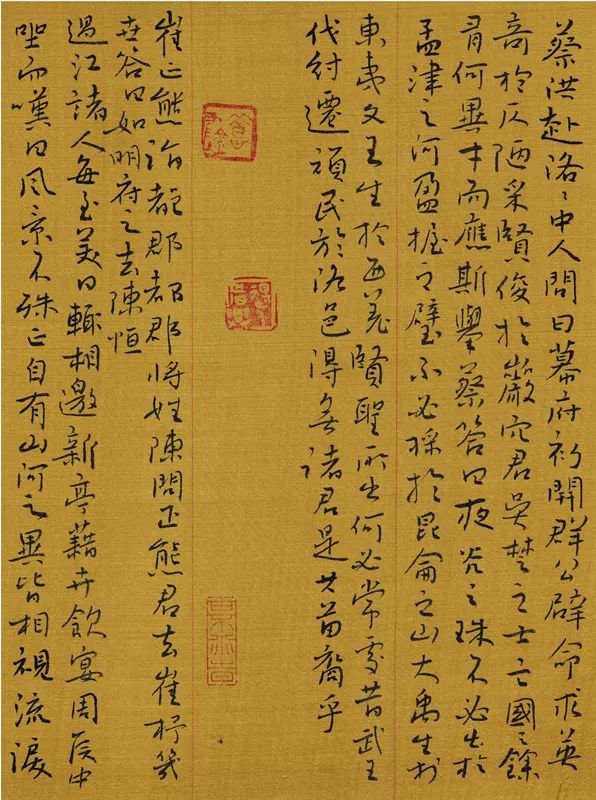 蔡洪赴洛〻中人問曰幕府初開群公辟命求英
奇於仄陋采賢俊於巖穴君吳楚之士亡國之餘
有何異才而應斯舉蔡答曰夜光之珠不必出於
孟津之河盈握之璧不必採於昆侖之山大禹生於
東夷文王生於西羌賢聖所出何必常處昔武王
伐紂遷頑民於洛邑得無諸君是其苗裔乎
崔正熊詣都郡都郡將姓陳問正熊君去崔杼幾
世答曰如明府之去陳恒
過江諸人每至美日輒相邀新亭藉卉飲宴周侯中
坐而嘆曰風景不殊正自有山河之異皆相視流淚